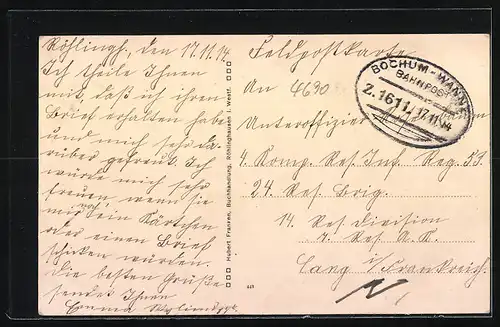 Röhlingh, den 17.11.14
Ich theile Ihnen
mit, daß ich ihren
Brief erhalten habe
und mich sehr da-
rüber gefreut. Ich
würde mich sehr
freuen wenn sie
mir noch ein Kärtchen
oder einen Brief
schicken würden.
Die besten Grüße
sendet Ihnen
Emma
Hubert Franzen, Buchhandlung, Röhlinghausen i. Westf.
Feldpostkarte
An 4630
Unteroffizier
4. Komp. Res. Inf. Reg. 53
27. Res. Brig.
14. Res. Division
Res. A. K.
i/Frankreich.
BOCHUM-WANNE
BAHNPOST
Z. 1611 17.11.14